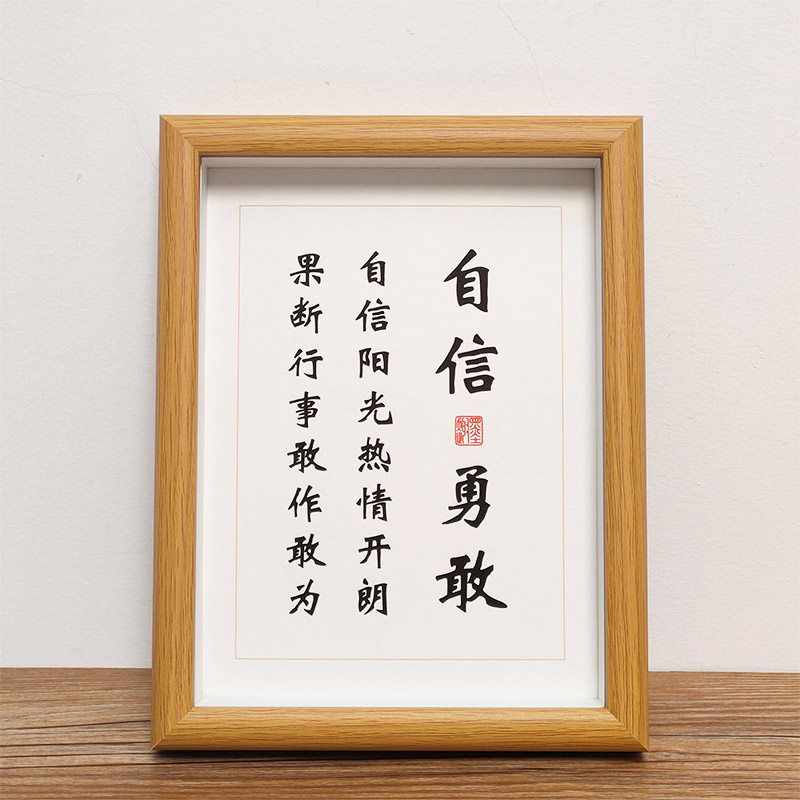 自信勇敢
自信阳光热情开朗
果断行事敢作敢为